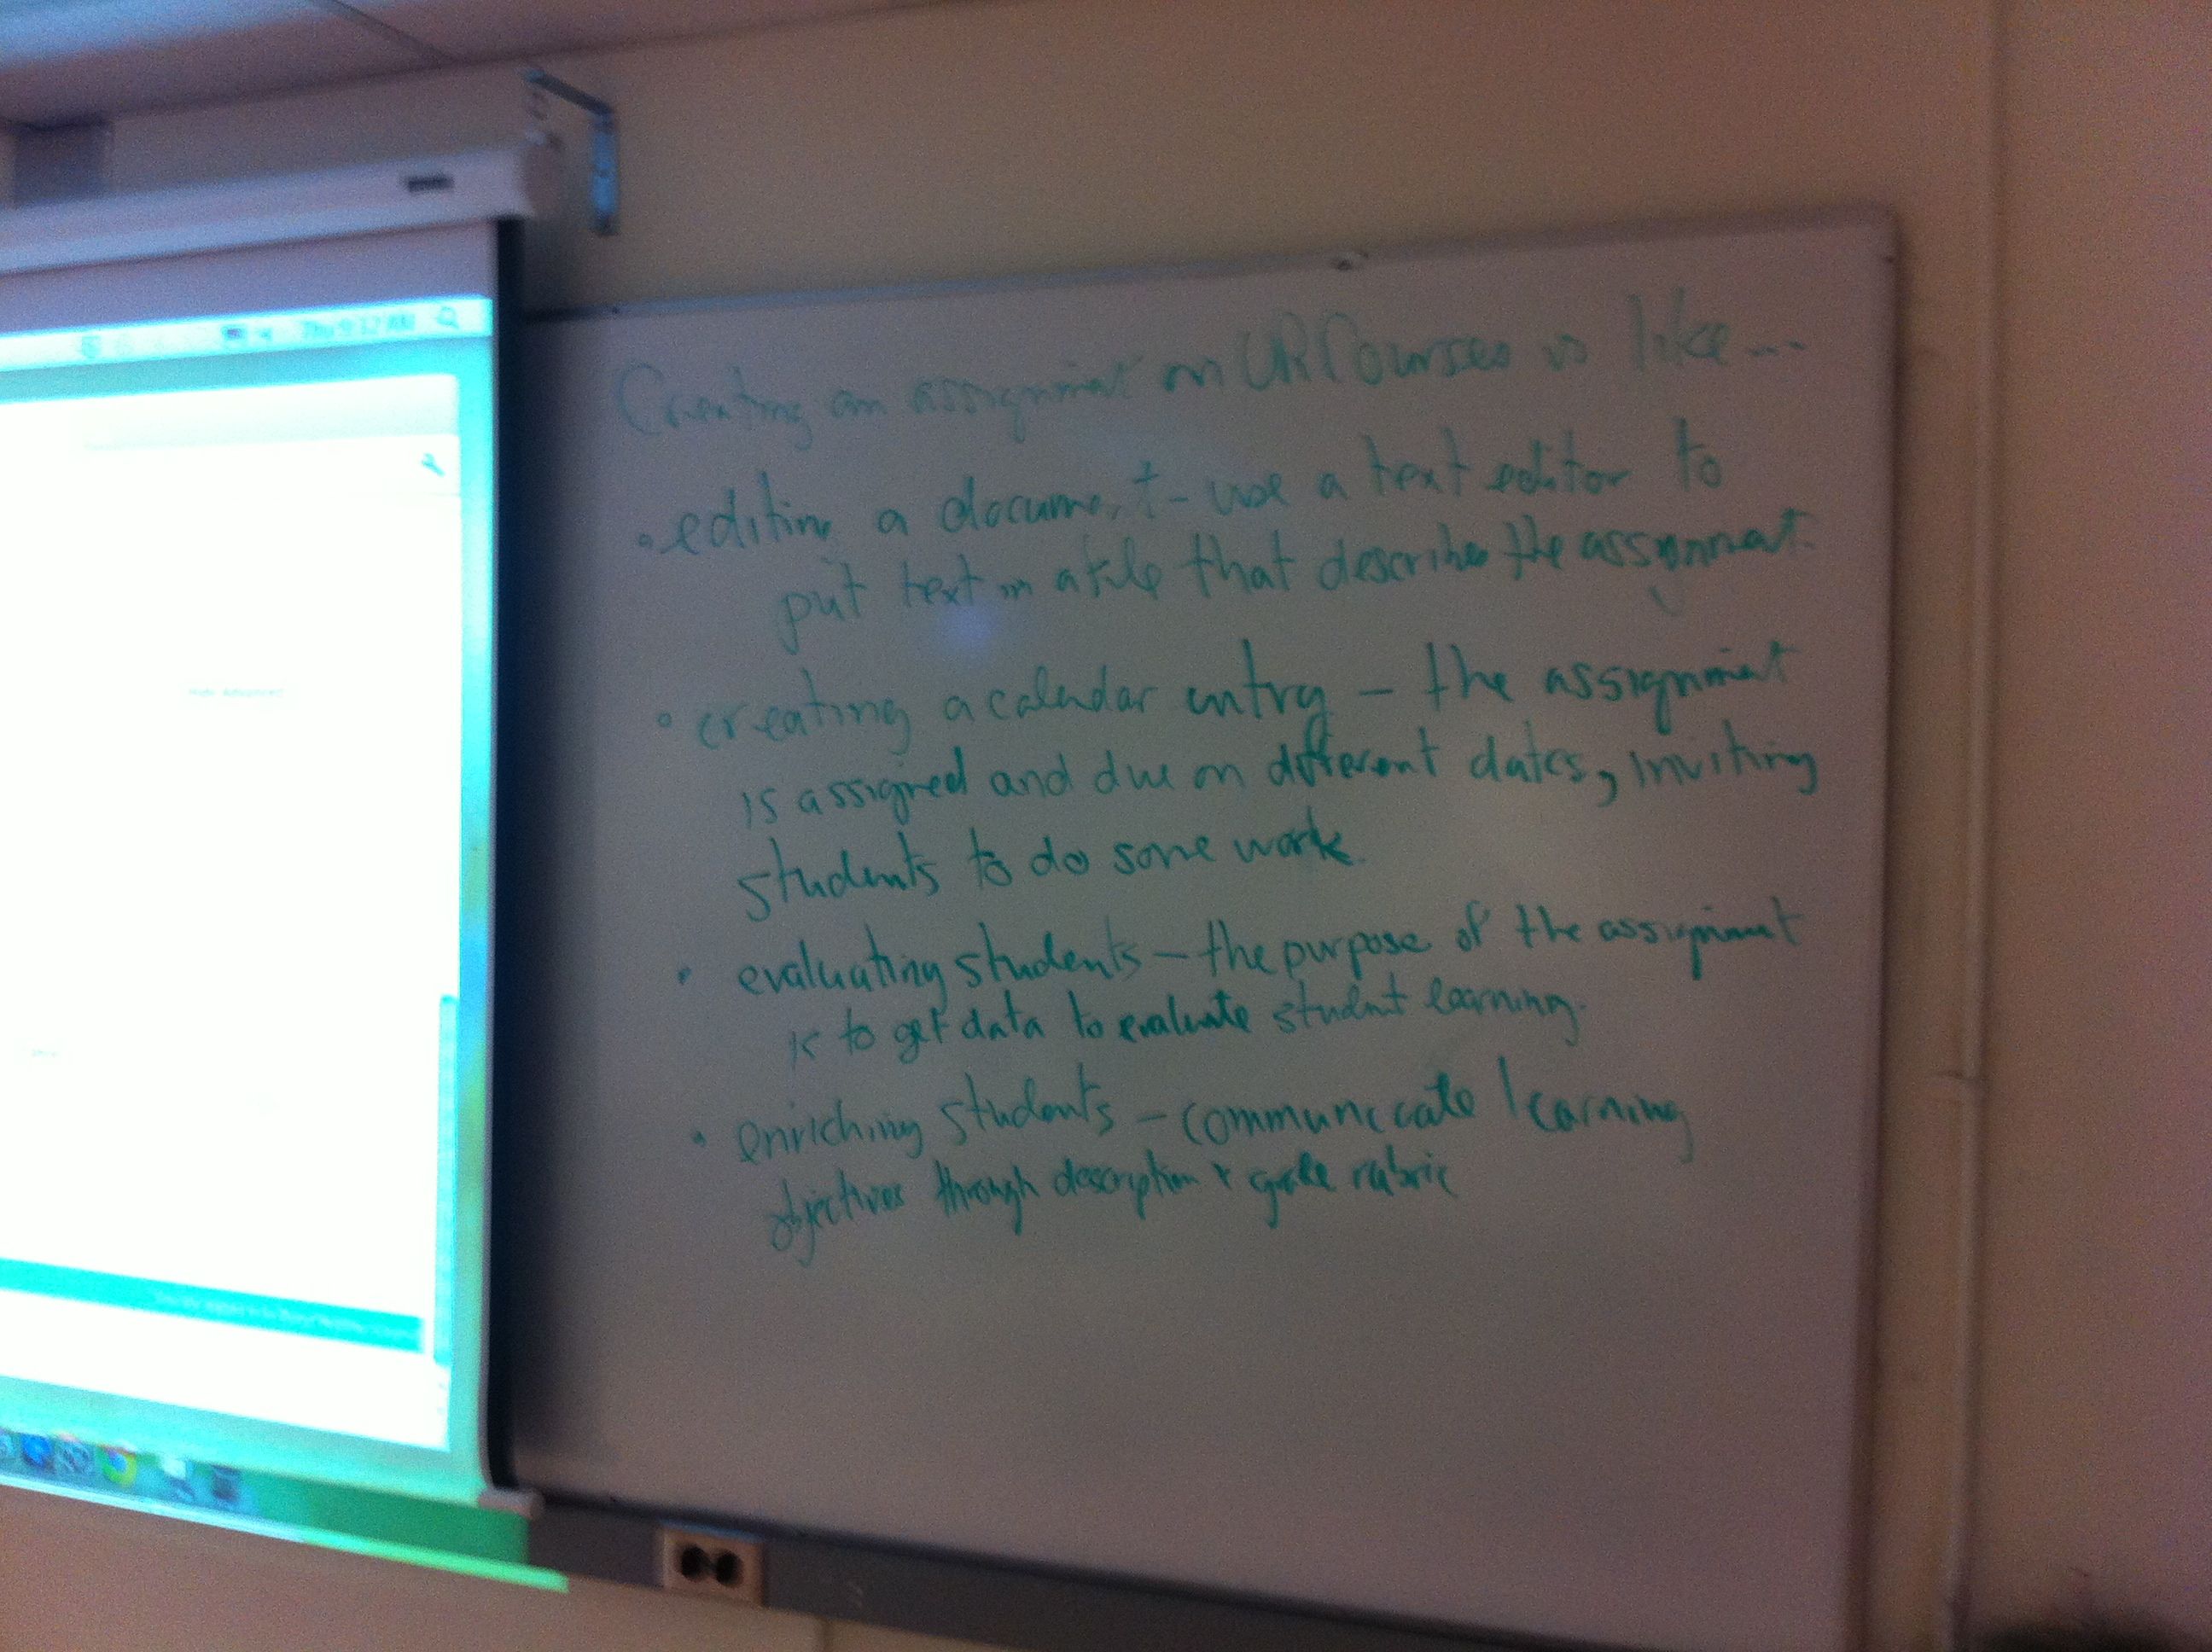 Thu 9:32 AM
Creating an assignment on URCourses is like...
• editing a document - use a text editor to
put text in a file that describes the assignment.
• creating a calendar entry - the assignment
is assigned and due on different dates, inviting
students to do some work.
• evaluating students - the purpose of the assignment
is to get data to evaluate student learning.
• enriching students - communicate learning
objectives through description + grade rubric